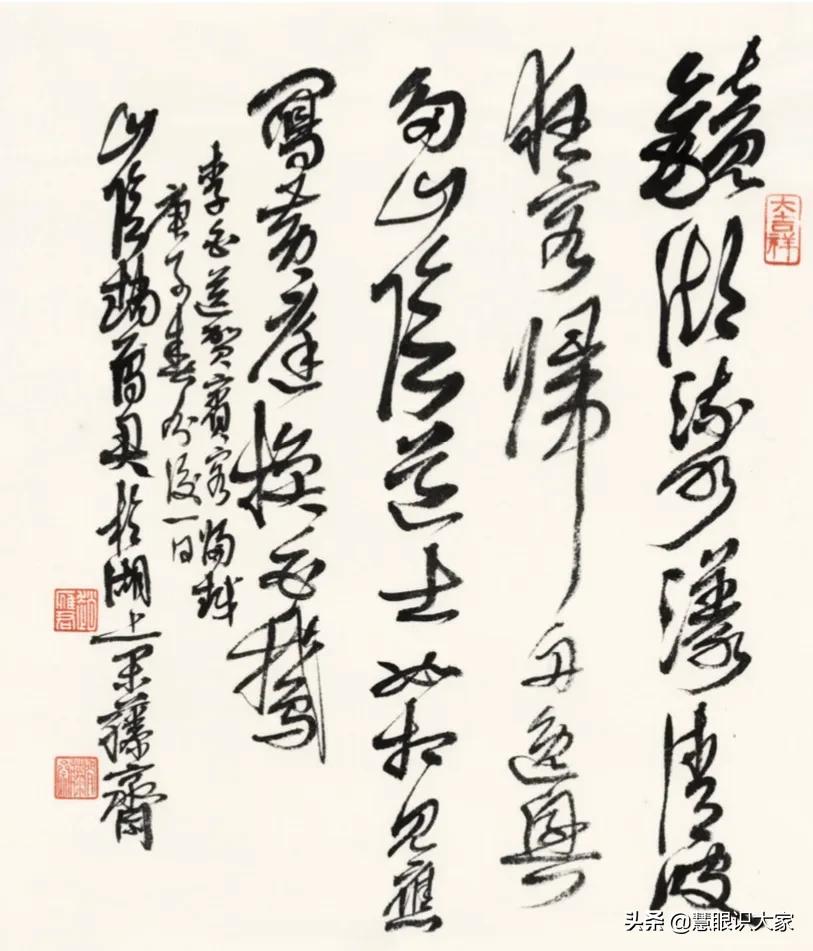 大吉祥
鏡湖流水漾清波
狂客歸舟逸興
多山陰道士如相見應
寫黃庭換白鵝
李白送賀賓客歸越
庚子春分後一日
山陰趙雁君於湖上藤齋
趙雁君
头条 @慧眼识大家